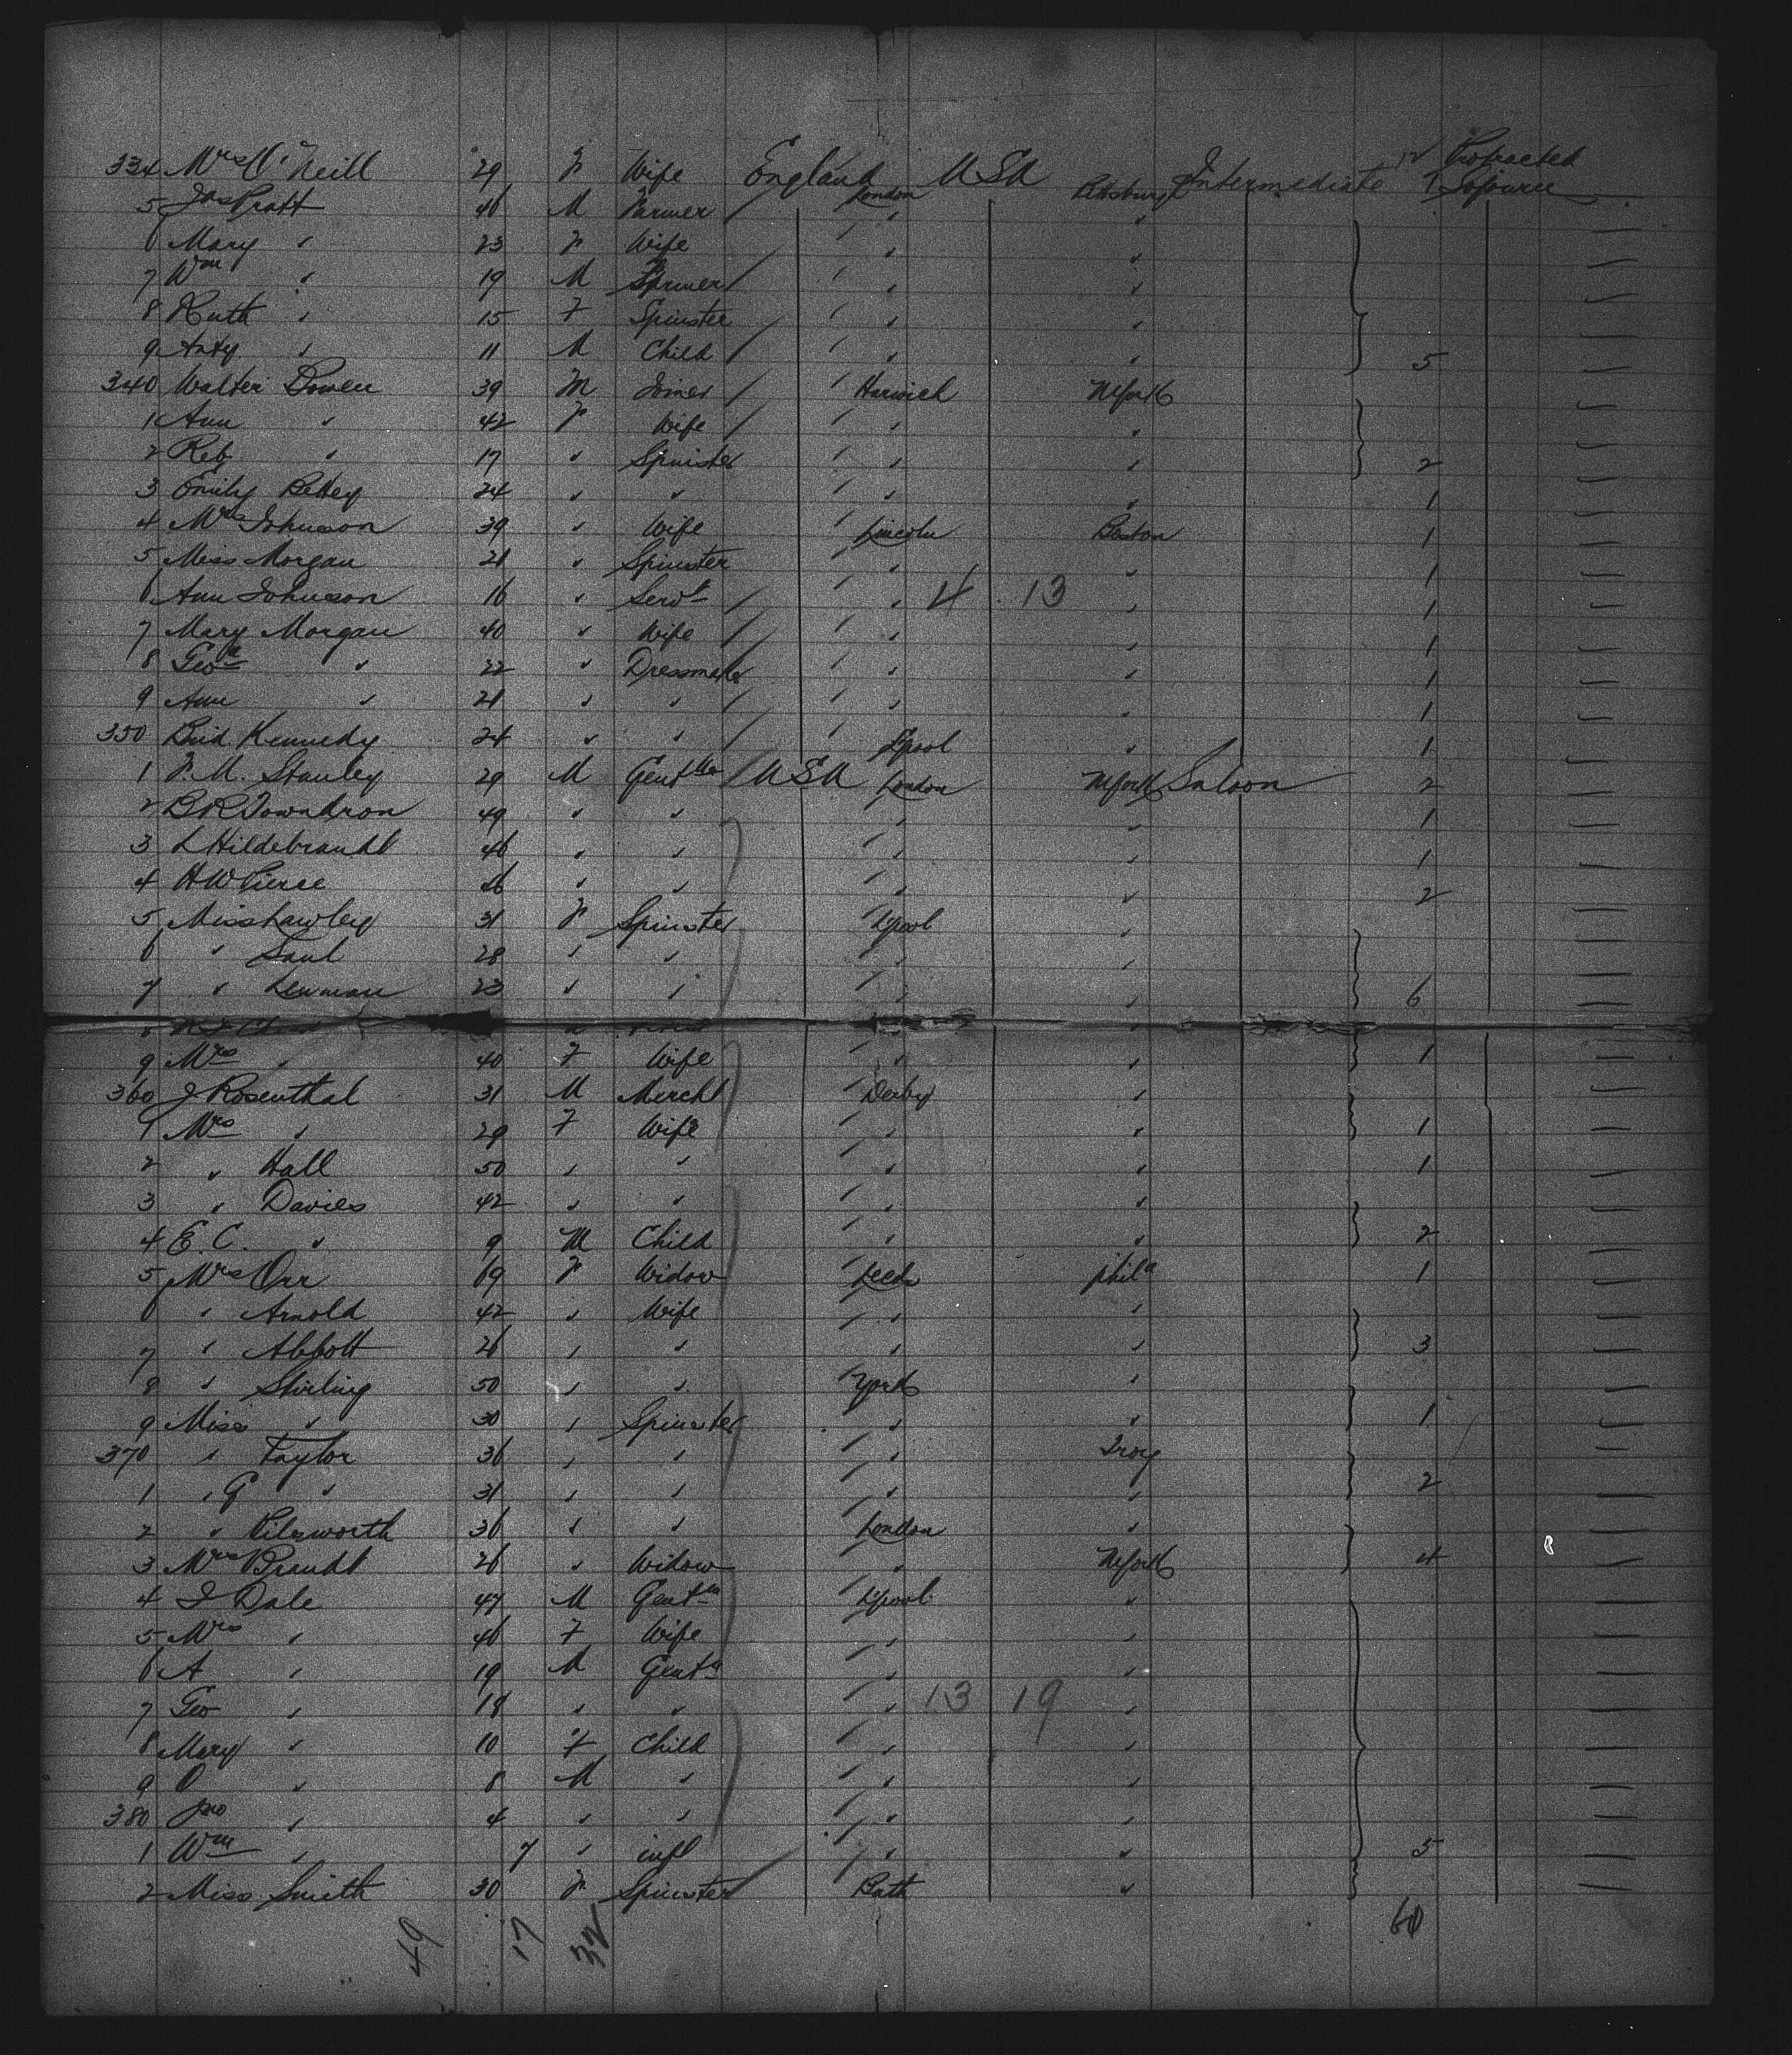 334 Mrs O'Neill 29 F Wife England London USA Pittsburg Intermediate 1 Protracted Sojourn
5 Jas Pratt 46 M Farmer " "
6 Mary " 23 F Wife " "
7 Wm " 19 M Farmer " "
8 Ruth " 15 F Spinster " "
9 " 11 M Child " " 5
340 Walter Bowen 39 M Joiner Harwich NYork
1 Ann " 42 F Wife " "
2 Reb " 17 " Spinster " " 2
3 Emily Bettey 24 " " " " 1
4 Mrs Johnson 39 " Wife Lincoln Boston 1
5 Miss Morgan 21 " Spinster " " 1
6 Ann Johnson 16 " Servt " 4 13 " 1
7 Mary Morgan 40 " Wife " " 1
8 Geoa " 22 " Dressmaker " " 1
9 Ann " 21 " " " " 1
350 Brid Kennedy 24 " " Lpool " 1
1 F. M. Stanley 29 M Gentln USA London NYork Saloon 2
2 B R Towndron 49 " " " " 1
3 L Hildebrandt 46 " " " " 1
4 H W Pierce 26 " " " " 2
5 Miss Lawley 31 F Spinster Lpool "
6 " Saul 28 " " " "
7 " Lewman 23 " " " " 6
9 Mrs " 40 F Wife " " 1
360 J Rosenthal 31 M Mercht Derby "
1 Mrs " 29 F Wife " " 1
2 " Hall 50 " " " " 1
3 " Davies 42 " " " "
4 E. C. " 9 M Child " " 2
5 Mrs Orr 69 F Widow Leeds phila 1
6 " Arnold 42 " Wife " "
7 " Abbott 26 " " " " 3
8 " Stirling 50 " " York "
9 Miss " 30 " Spinster " " 1
370 " Taylor 36 " " " Troy
1 " G " 31 " " " " 2
2 " Pilsworth 36 " " London "
3 Mrs Brandt 26 " Widow " NYork 4
4 J Dale 47 M Gentn Lpool "
5 Mrs " 46 F Wife " "
6 A " 19 M Gentn " "
7 Geo " 18 " " " 13 19 "
8 Mary " 10 F Child " "
9 O " 8 M " " "
380 Jno " 4 " " " "
1 Wm " 7 " inft " " 5
2 Miss Smith 30 F Spinster Bath "
49 17 32 60